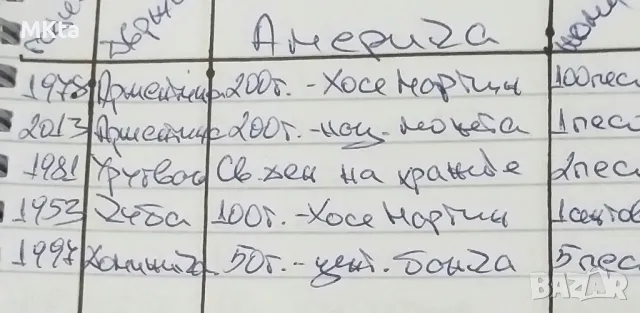 MKta
Държ
Америка
1978 Аржентина 200г. - Хосе Мартин 100 песо
2013 Аржентина 200г. - нац. монета 1 песо
1981 Уругвай Св. ден на храните 2 песо
1953 Куба 100г. - Хосе Мартин 1 сентаво
1997 Доминика 50г. - цент. банка 5 песо
BAZAR